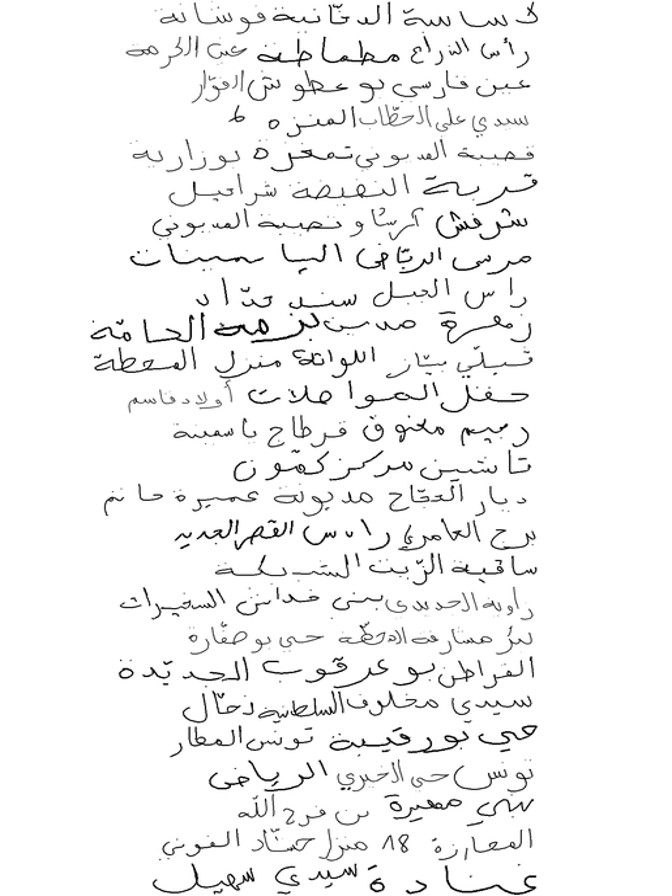 كساسة الدخانية فوشانة
رأس الذراع مطماطة عين الكرمة
عين فارسي بو عطوش الفوّار
سيدي علي الحطّاب المنزه 6
قصيبة المديوني تمغزة بوزارية
قرية النفيضة شراحيل
شرفش أكريشا و قصيبة المديوني
مرسى الرياض الياسمينات
راس الجبل سند حدّاد
زهرة مدين بزمة الحامّة
قبلّي بيّاز اللواتة منزل المحطة
حقل المواصلات أولاد قاسم
رميم معنوق قرطاج ياسمينة
تاشين مركز كمّون
ديار الحجّاج مديونة عميرة حاتم
برج العامري راس القصر الجديد
ساقية الزّيت الشبيكة
زاوية الحديدي بني فداش السخيرات
بئر مشارقة المحطّة حي بوصفّارة
القراطن بو عرقوب الجديّدة
سيدي مخلوف السلطانية زحّال
حي بورقيبة تونس المطار
تونس حي الخيري الرياض
سهي مهيرة بن فرج الله
المعازة 18 منزل حشّاد الفوني
عنادة سيدي سهيل